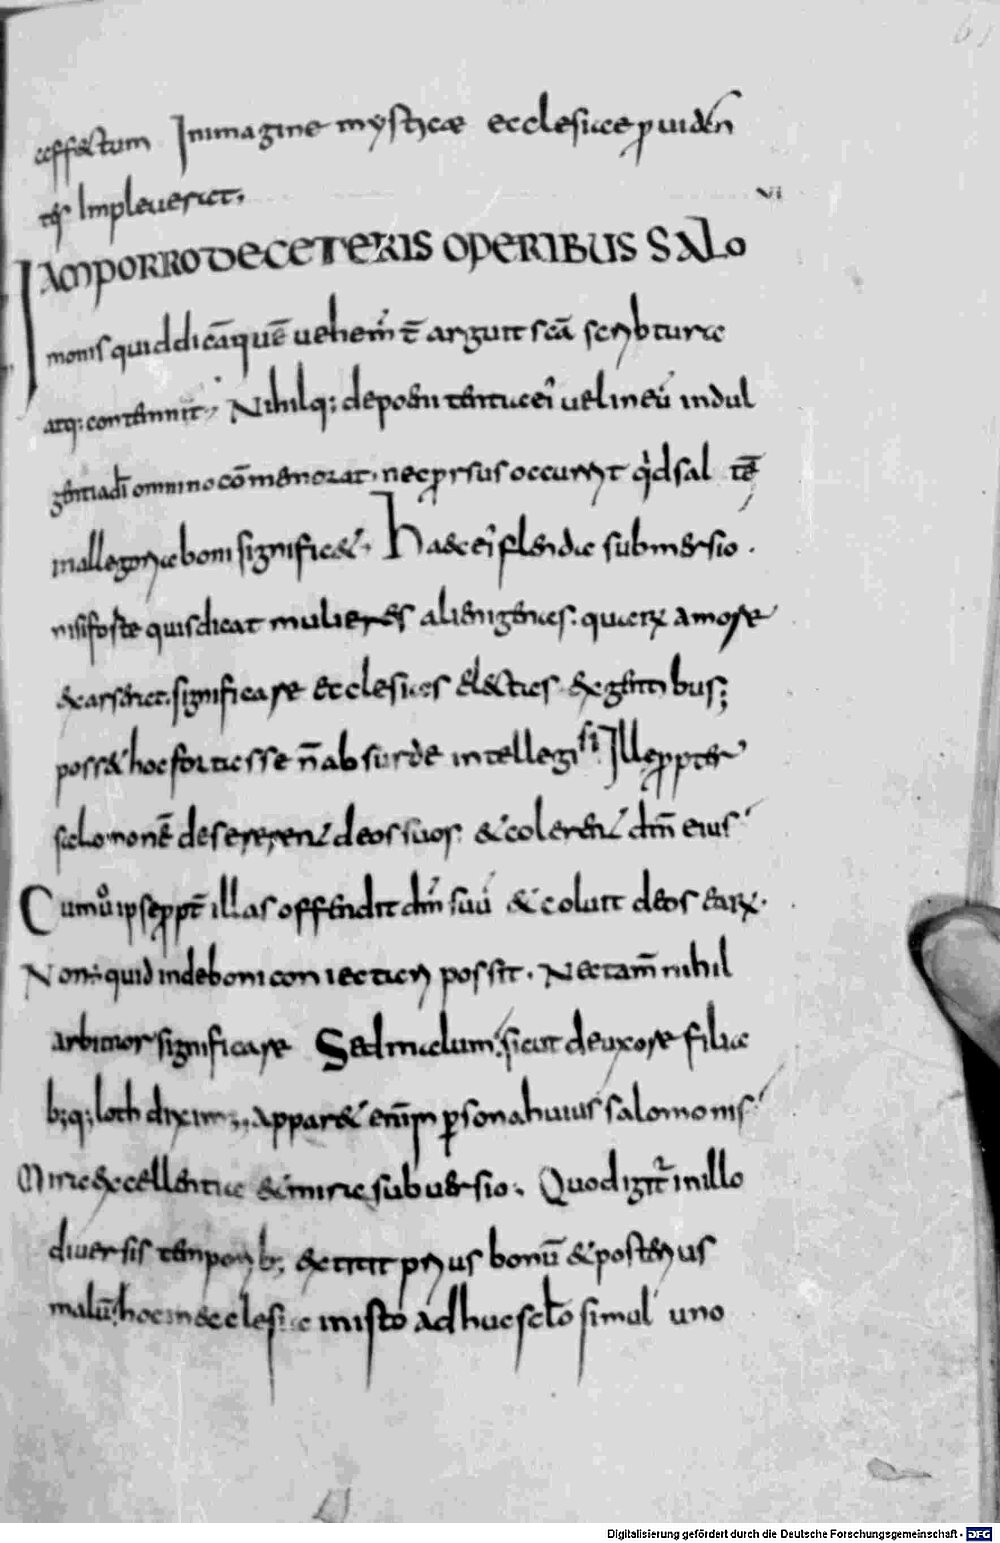 61
aeffectum Inimagine mysticae ecclesiae ꝓuiden
ter Impleuerat.
VI
IAMPORRODECETERIS OPERIBUS SALO
monis quiddicā quē uehem̄ t̄ arguit scā scribturae
atq: contemnit, Nihilq: depoenitentia eī uel ineū indul
gentia dī omnino cōmemorat. nec prorsus occurrit qd sal tē
inallegoria boni significet, haec eī flenda submersio.
nisi forte quis dicat mulieres alienigenas: quarū amore
exarserat. significare ecclesias electas exgentibus;
posset hoc fortasse n̄ absurde intellegi si Ille ꝓpter
salomonē desererent deos suos. & colerent dm̄ eius
Cum uo ipse ꝓpt̄ illas offendit dm̄ suū & coluit deos earū.
Non ÷ quid inde boni coniectari possit. Nec tam̄ nihil
arbitror significare Sed malum. sicut deuxore filia
b;q; loth diximus, Apparet enim ꝑsona huius salomonis
Mira excellentia & mira subuersio. Quod igit̄ inillo
diuersis temporib; extitit prius bonū & posterius
malū. hoc inecclesia inisto adhuc sclo simul uno
Digitalisierung gefördert durch die Deutsche Forschungsgemeinschaft - DFG